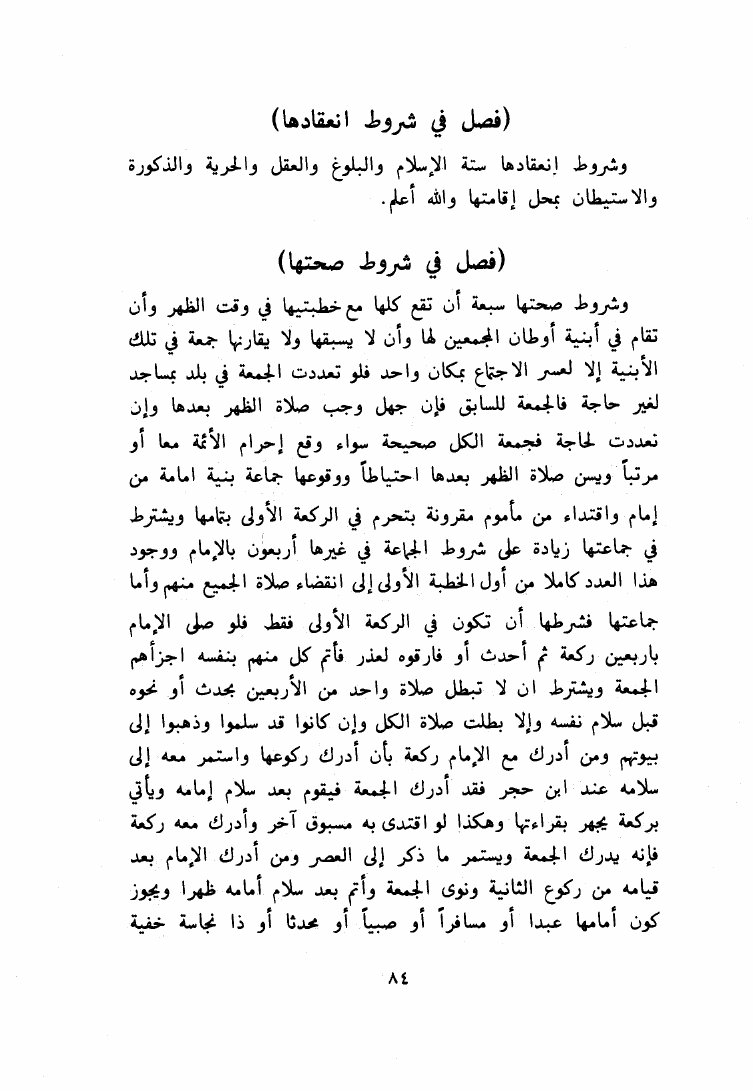 (فصل في شروط انعقادها)
وشروط إنعقادها ستة الإسلام والبلوغ والعقل والحرية والذكورة
والاستيطان بمحل إقامتها والله أعلم.
(فصل في شروط صحتها)
وشروط صحتها سبعة أن تقع كلها مع خطبتيها في وقت الظهر وأن
تقام في أبنية أوطان المجمعين لها وأن لا يسبقها ولا يقارنها جمعة في تلك
الأبنية إلا لعسر الاجتماع بمكان واحد فلو تعددت الجمعة في بلد بمساجد
لغير حاجة فالجمعة للسابق فإن جهل وجب صلاة الظهر بعدها وإن
تعددت لحاجة فجمعة الكل صحيحة سواء وقع إحرام الأئمة معا أو
مرتباً ويسن صلاة الظهر بعدها احتياطاً ووقوعها جماعة بنية امامة من
إمام واقتداء من مأموم مقرونة بتحرم في الركعة الأولى بتمامها ويشترط
في جماعتها زيادة على شروط الجماعة في غيرها أربعون بالإمام ووجود
هذا العدد كاملا من أول الخطبة الأولى إلى انقضاء صلاة الجميع منهم وأما
جماعتها فشرطها أن تكون في الركعة الأولى فقط فلو صلى الإمام
باربعين ركعة ثم أحدث أو فارقوه لعذر فأتم كل منهم بنفسه اجزأهم
الجمعة ويشترط ان لا تبطل صلاة واحد من الأربعين بحدث أو نحوه
قبل سلام نفسه وإلا بطلت صلاة الكل وإن كانوا قد سلموا وذهبوا إلى
بيوتهم ومن أدرك مع الإمام ركعة بأن أدرك ركوعها واستمر معه إلى
سلامه عند ابن حجر فقد أدرك الجمعة فيقوم بعد سلام إمامه ويأتي
بركعة يجهر بقراءتها وهكذا لو اقتدى به مسبوق آخر وأدرك معه ركعة
فإنه يدرك الجمعة ويستمر ما ذكر إلى العصر ومن أدرك الإمام بعد
قيامه من ركوع الثانية ونوى الجمعة وأتم بعد سلام أمامه ظهرا ويجوز
كون أمامها عبدا أو مسافراً أو صبياً أو محدثا أو ذا نجاسة خفية
٨٤